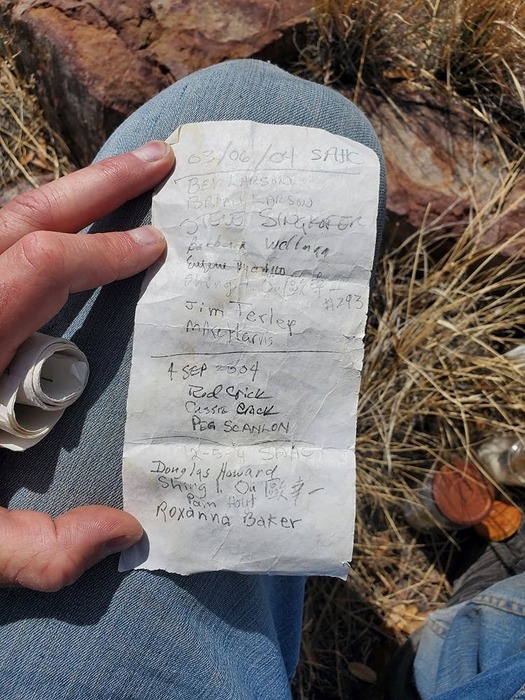 03/06/04 SAHC
BEV LARSON
BRIAN LARSON
STEVE SINGKOFER
Barbara
Shing I. Ou 歐辛一
#293
Jim Terley
Mike Harris
4 SEP 2004
Rod Crick
Cussie Crack
PEG SCANLON
12-5-4 SHAC
Douglas Howard
Shing I. Ou 歐辛一
Pam Hoit
Roxanna Baker